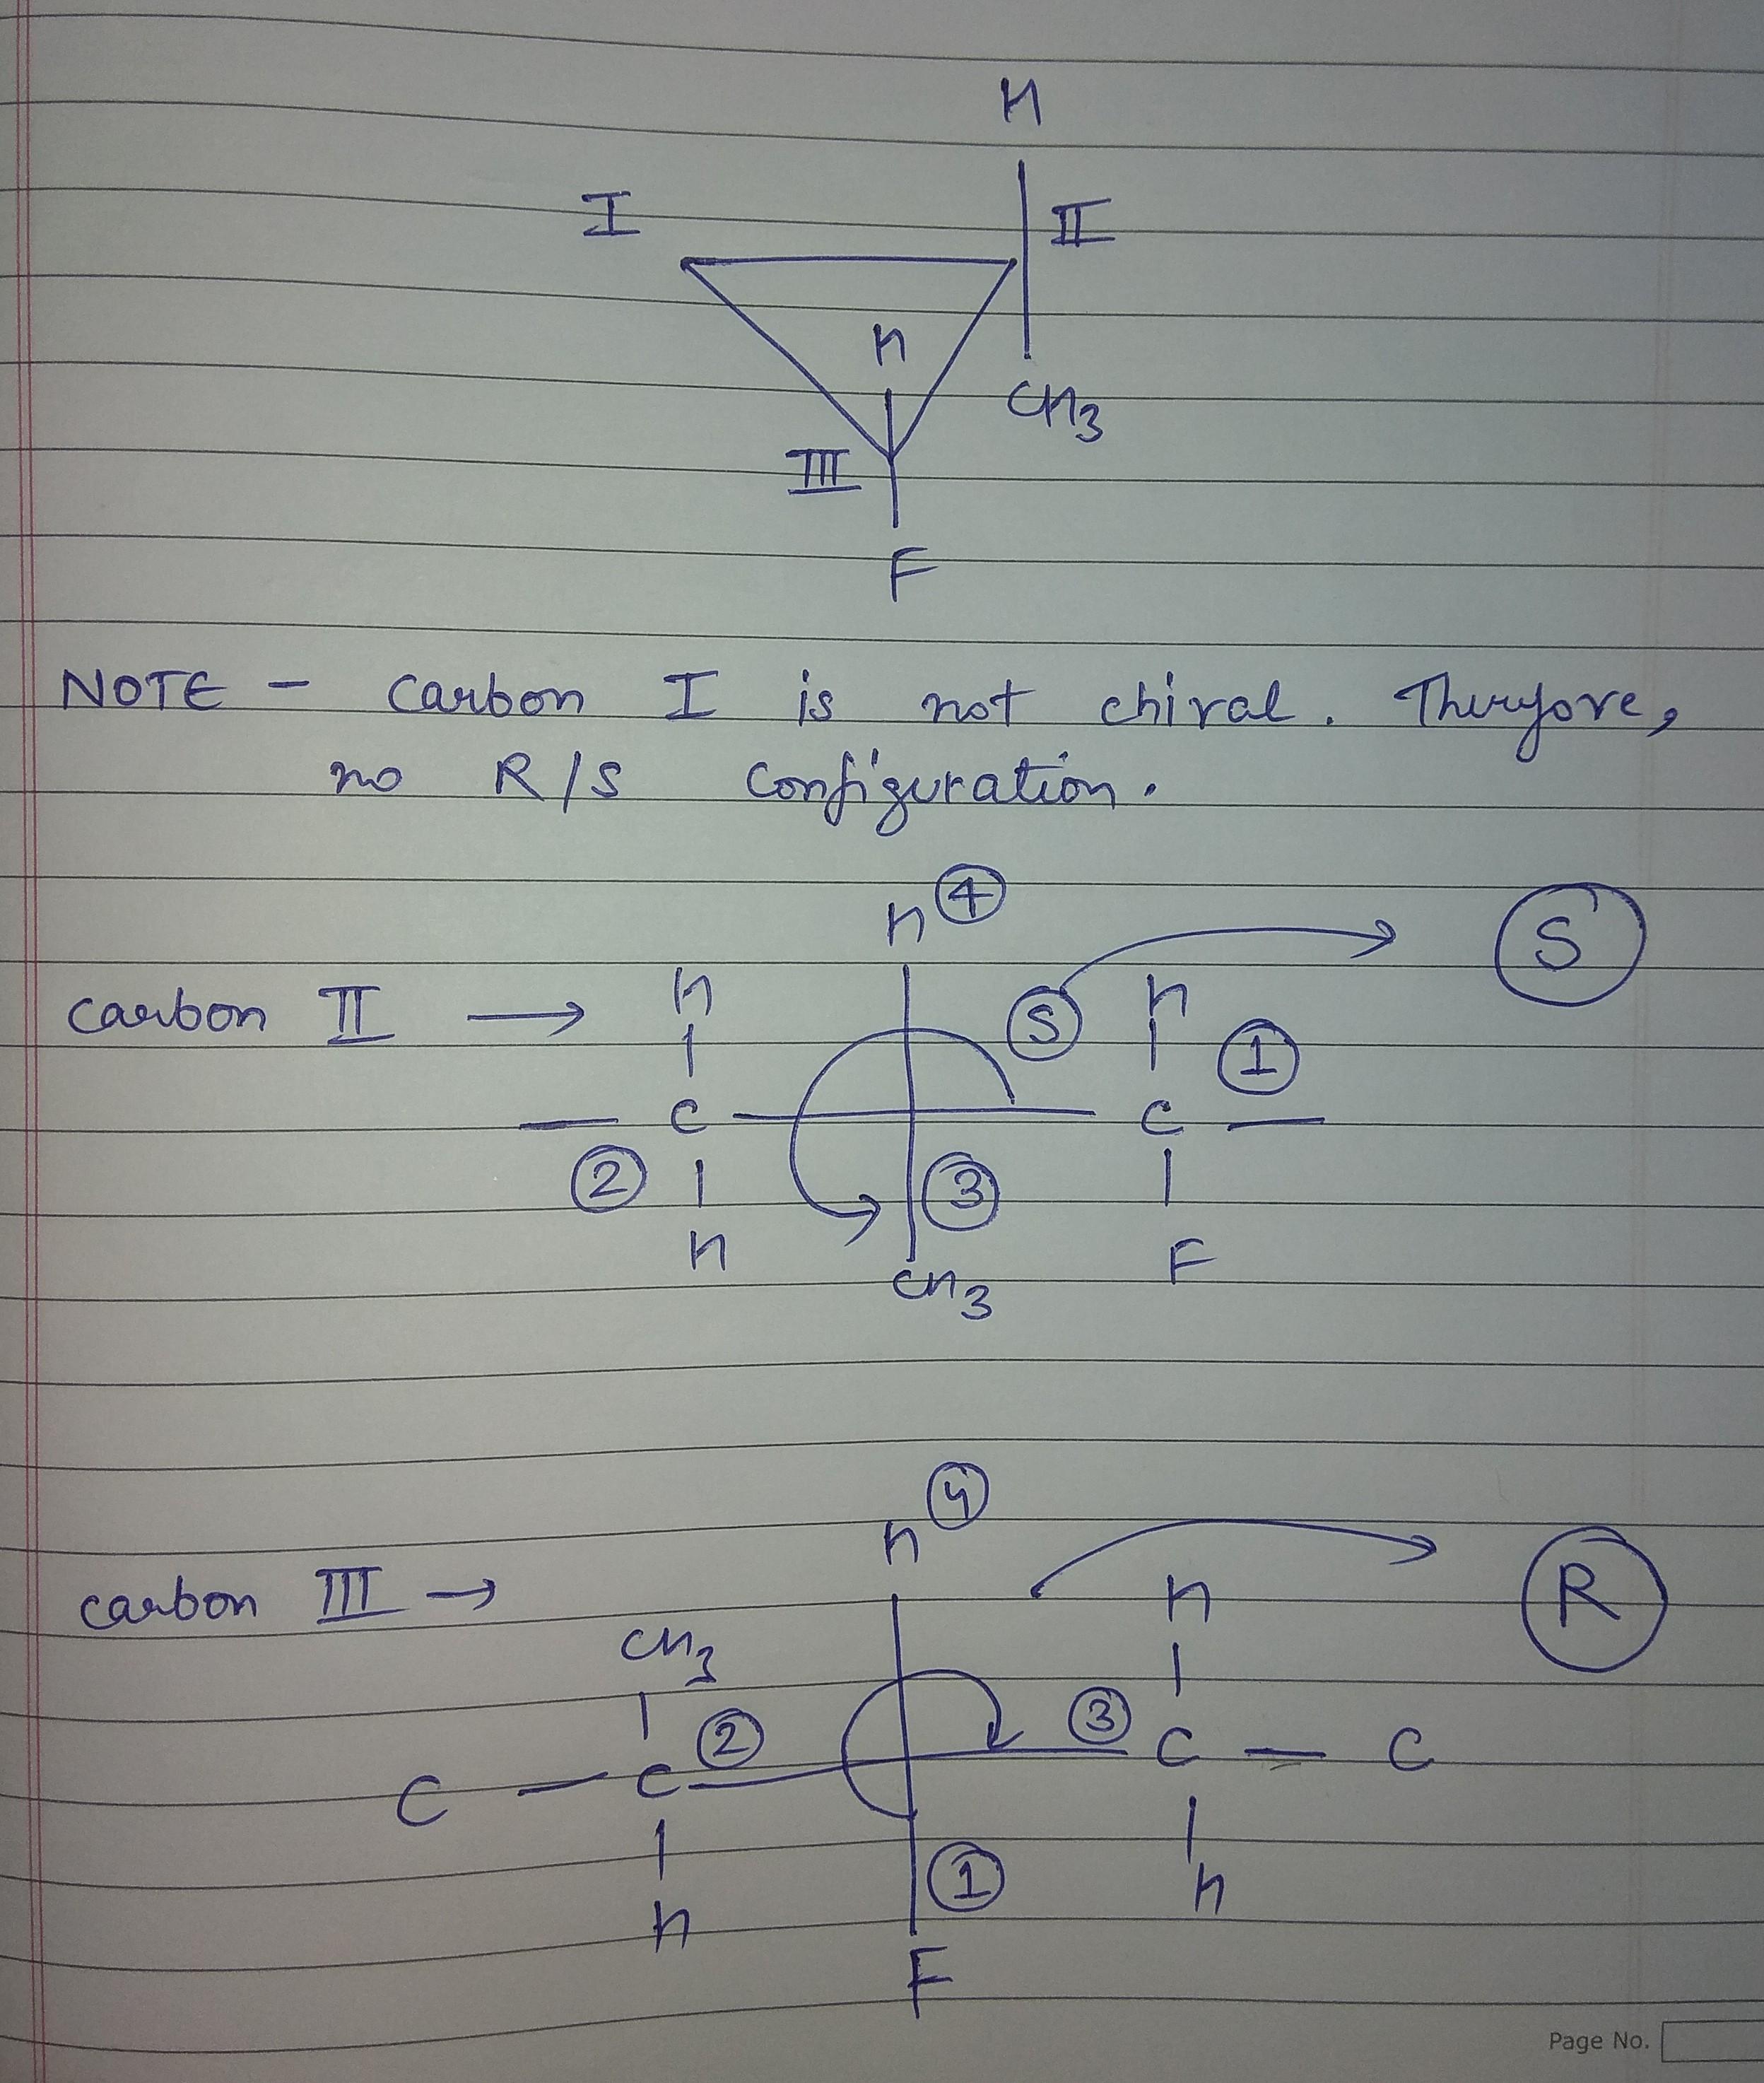 H
I
II
H
CH3
III
F
NOTE - Carbon I is not chiral. Therefore,
no R/S Configuration.
H 4
S
carbon II → H S H
1
C C
2 3
H F
CH3
4
H
carbon III → H R
CH3
2 3
C - C C - C
1
H H
F
Page No.